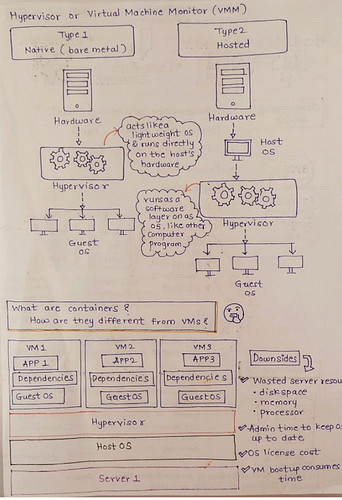 Hypervisor or Virtual Machine Monitor (VMM)
Type 1
Native (bare metal)
Type 2
Hosted
Hardware
acts like a
lightweight OS
& runs directly
on the host's
hardware
Hypervisor
Guest
OS
Hardware
Host
OS
runs as a
software
layer on as
OS, like other
Computer
program.
Hypervisor
Guest
OS
What are containers?
How are they different from VMs?
VM1
APP 1
Dependencies
Guest OS
VM2
APP2
Dependencies
Guest OS
VM3
APP3
Dependencies
Guest OS
Hypervisor
Host OS
Server 1
Downsides
Wasted server resou
• diskspace
• memory
• Processor
Admin time to keep
up to date
OS license cost
VM bootup consumes
time